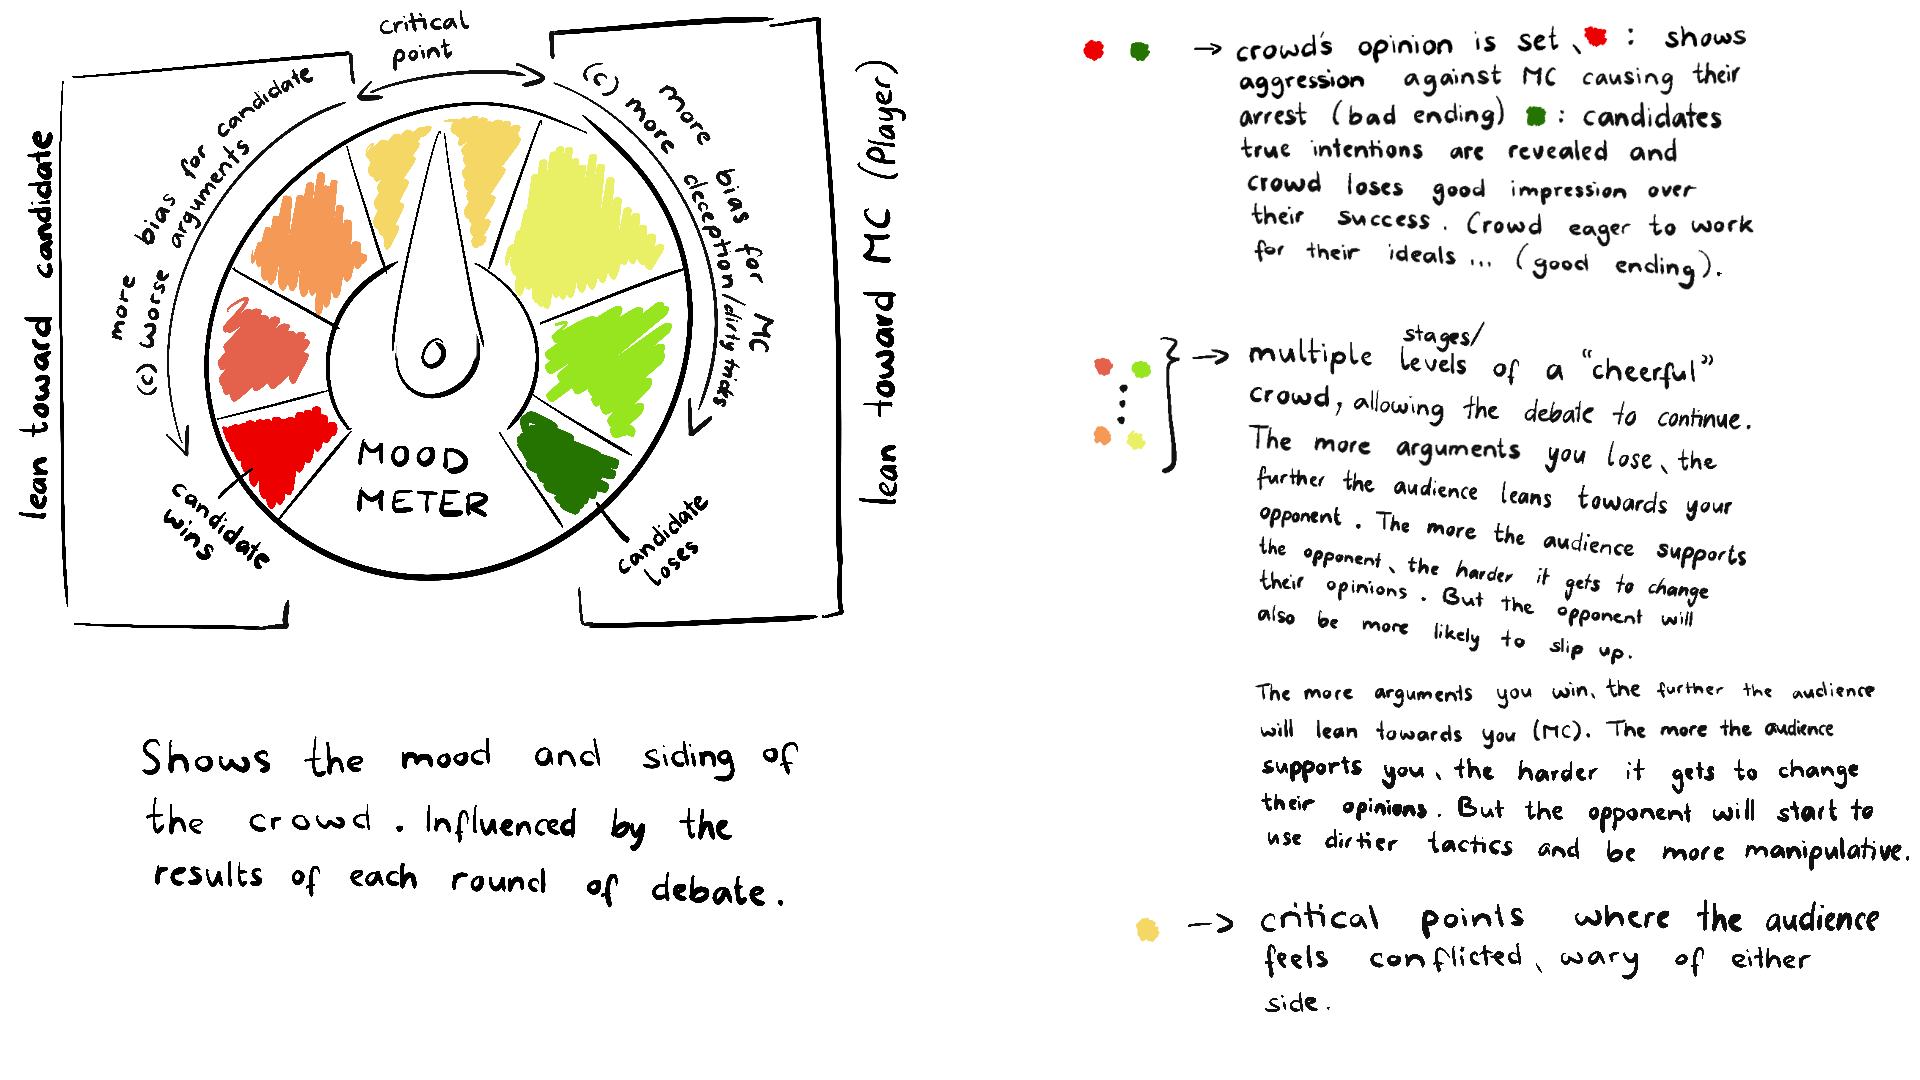 critical
point
lean toward candidate
more bias for candidate
(c) worse arguments
more bias for MC
(c) more deception/dirty tricks
lean toward MC (Player)
MOOD
METER
candidate
wins
candidate
loses
Shows the mood and siding of
the crowd. Influenced by the
results of each round of debate.
→ crowd's opinion is set, : shows
aggression against MC causing their
arrest (bad ending) : candidates
true intentions are revealed and
crowd loses good impression over
their success. Crowd eager to work
for their ideals... (good ending).
stages/
→ multiple levels of a "cheerful"
crowd, allowing the debate to continue.
The more arguments you lose, the
further the audience leans towards your
opponent. The more the audience supports
the opponent, the harder it gets to change
their opinions. But the opponent will
also be more likely to slip up.
The more arguments you win, the further the audience
will lean towards you (MC). The more the audience
supports you, the harder it gets to change
their opinions. But the opponent will start to
use dirtier tactics and be more manipulative.
→ critical points where the audience
feels conflicted, wary of either
side.